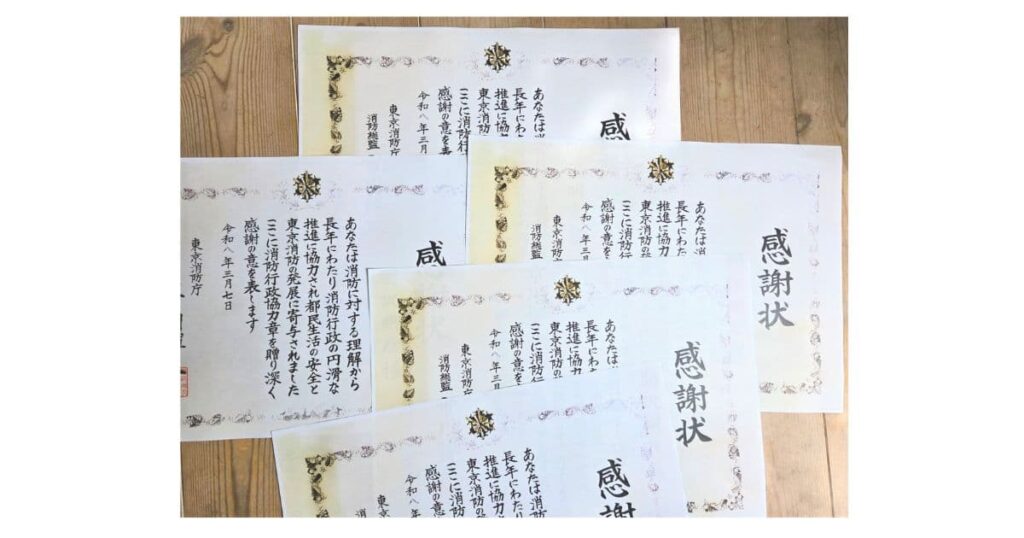 感
あなたは
長年にわた
推進に協力
東京消防の
ここに消防行
感謝の意を表
令和八年三月
東京消防庁
消防総監
感
あなたは消防に対する理解から
長年にわたり消防行政の円滑な
推進に協力され都民生活の安全と
東京消防の発展に寄与されました
ここに消防行政協力章を贈り深く
感謝の意を表します
令和八年三月七日
東京消防庁
感謝状
あなたは消
長年にわた
推進に協力
東京消防の
ここに消防行
感謝の意を表
令和八年三
東京消防庁
消防総監
感謝状
あなたは
長年にわた
推進に協力
東京消防の
ここに消防行
感謝の意を表
令和八年三月
東京消防庁
消防総監
感謝
あなたは消防
長年にわた
推進に協力
東京消防の
ここに消防
感謝の意
令和八年
東京